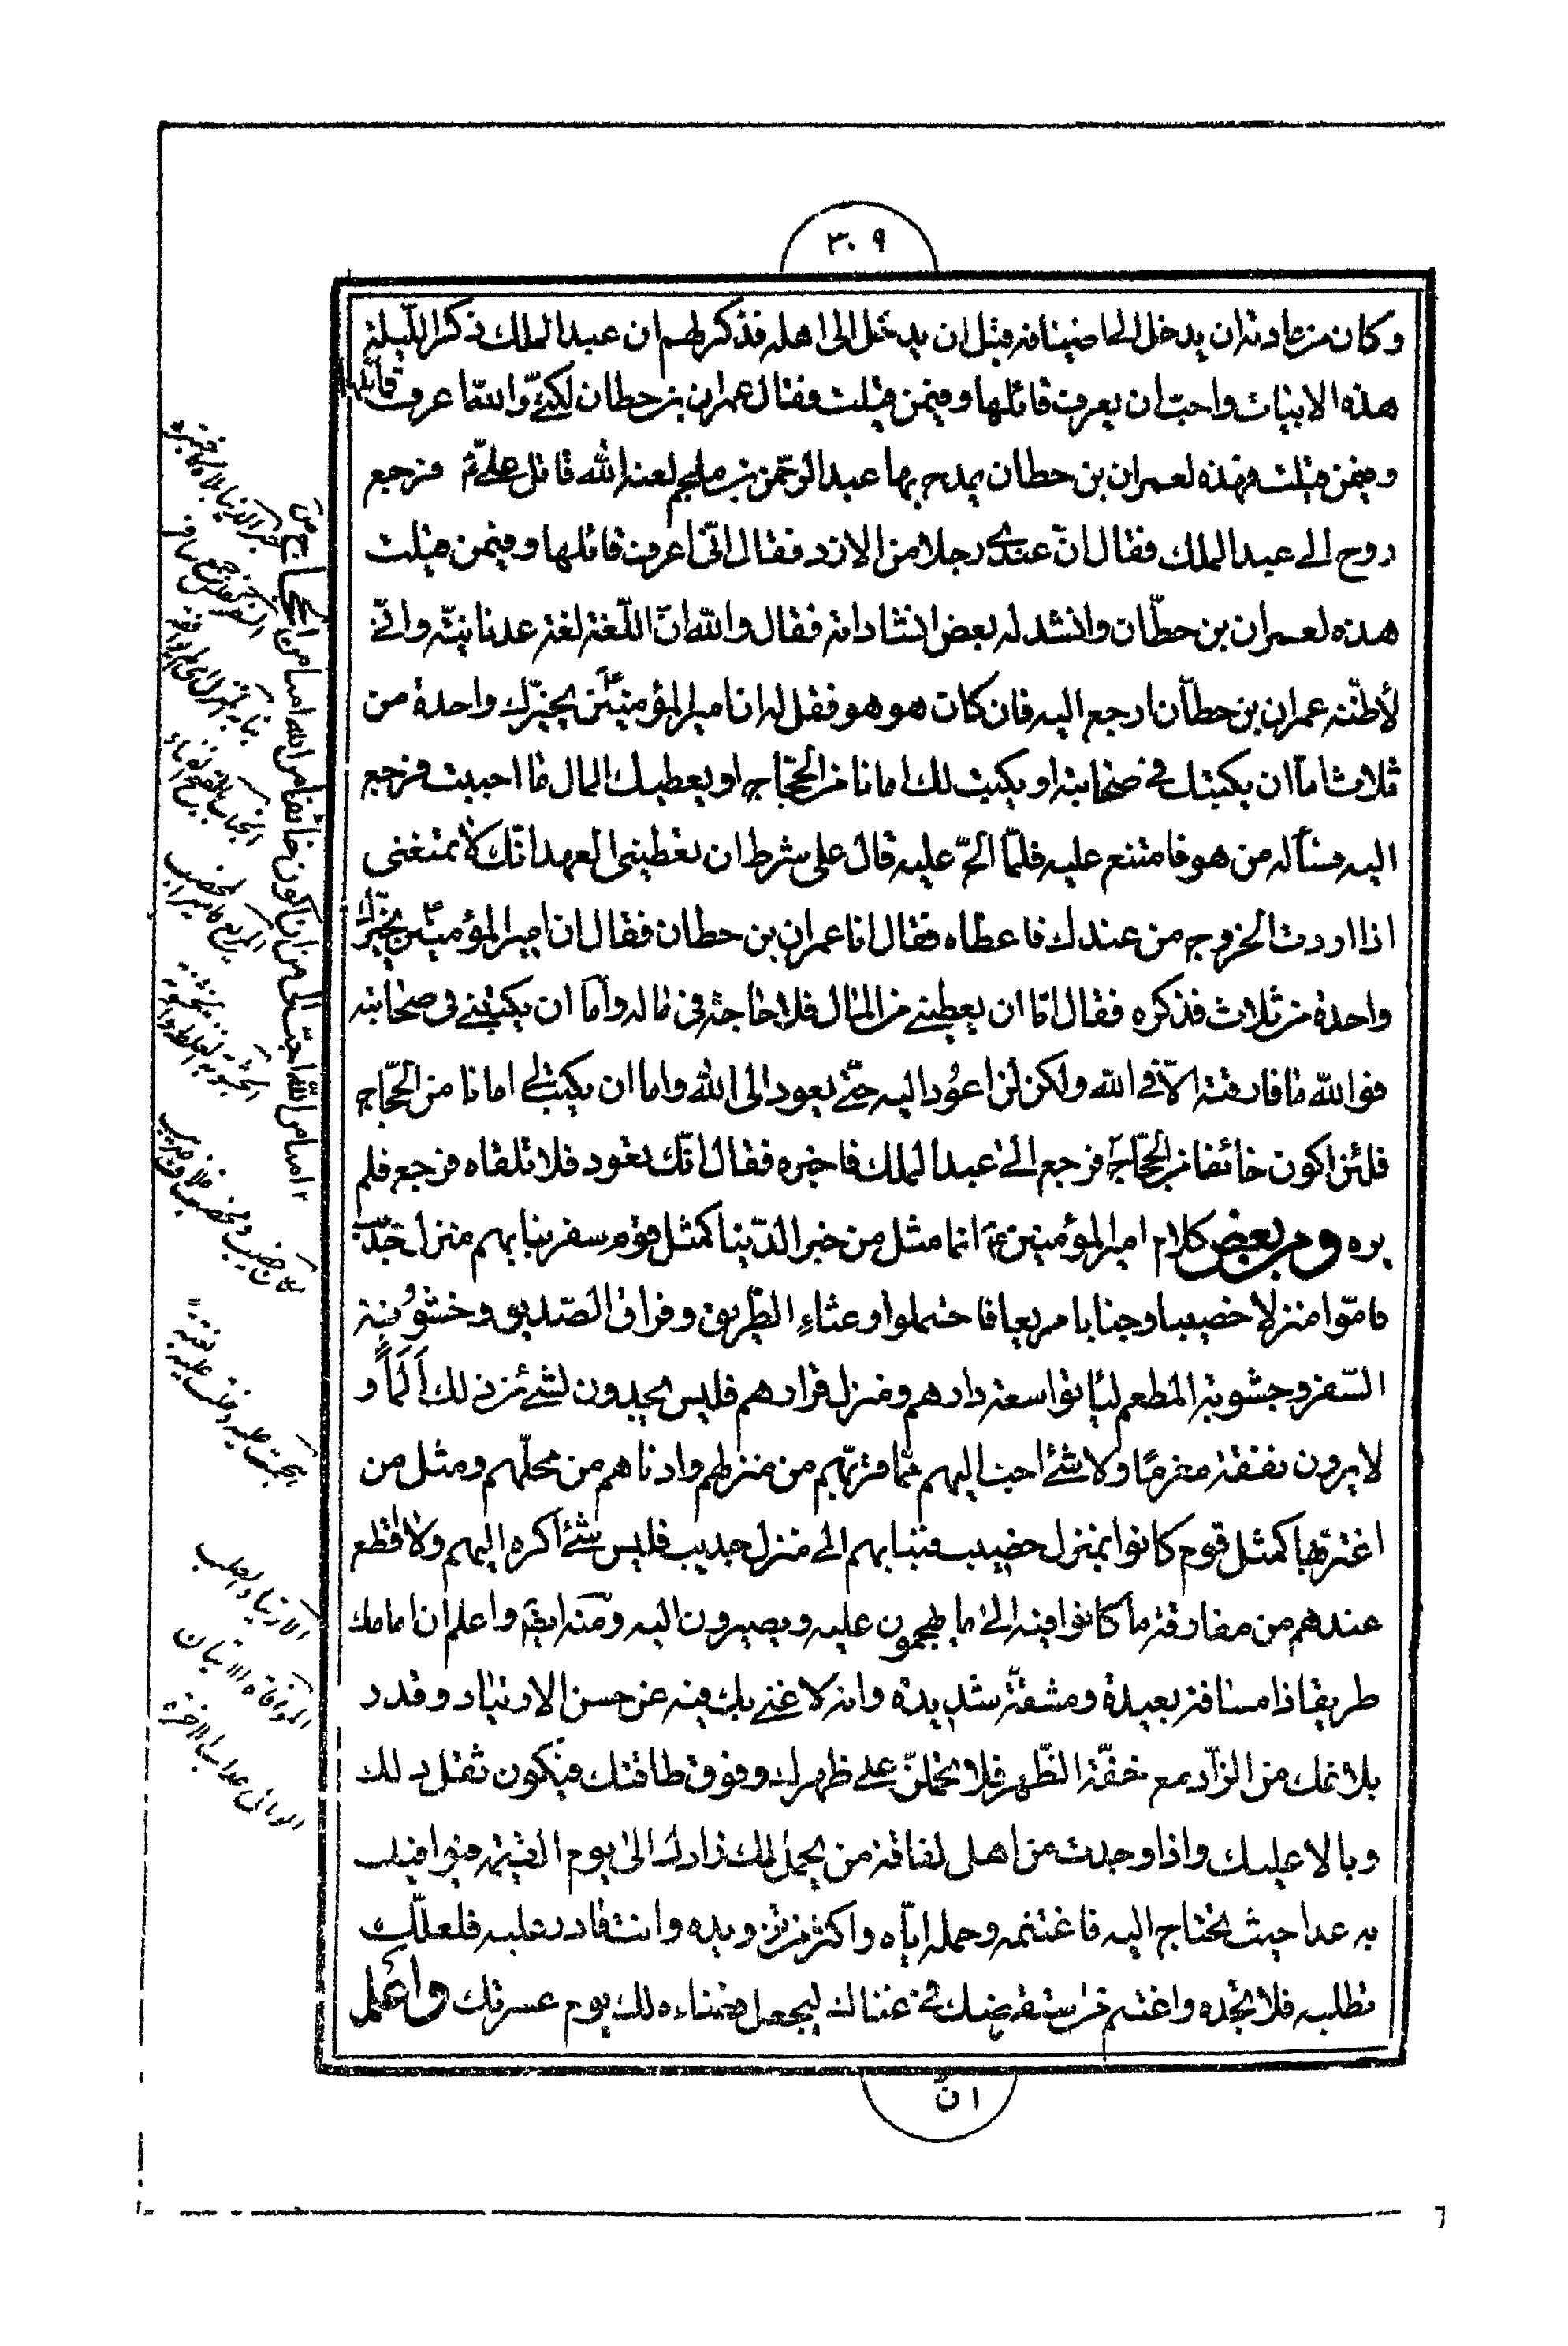 ٣٠٩
وكان من عادته ان يدخل الى اضيافه قبل ان يدخل الى اهله فذكر لهم ان عبد الملك ذكر الليلة
هذه الابيات واحب ان يعرف قائلها وفيمن قيلت فقال عمران بن حطان لكنّي والله اعرف قائلها
وفيمن قيلت فهذه لعمران بن حطان يمدح بها عبد الرحمن بن ملجم لعنه الله قاتل علي ع فرجع
روح الى عبد الملك فقال انّ عندي رجلا من الازد فقال انّي اعرف قائلها وفيمن قيلت
هذه لعمران بن حطّان وانشد له بعض انشاداته فقال والله انّ اللّغة لغة عدنانيّة وانّي
لأظنّه عمران بن حطّان ارجع اليه فان كان هو هو فقل له ان امير المؤمنين يخيّرك واحدة من
ثلاث امّا ان يكتبك في صحابته او يكتب لك امانا من الحجّاج او يعطيك المال ما احببت فرجع
اليه فسأله من هو فامتنع عليه فلمّا الحّ عليه قال على شرط ان تعطيني العهد انّك لا تمنعني
اذا اردت الخروج من عندك فاعطاه فقال انا عمران بن حطان فقال ان امير المؤمنين يخيّرك
واحدة من ثلاث فذكره فقال امّا ان يعطيني من المال فلا حاجة في ماله وامّا ان يكتبني في صحابته
فوالله ما فارقته الّا في الله ولكن لن اعود اليه حتّى يعود الى الله واما ان يكتب لي امانا من الحجّاج
فلئن اكون خائفا من الحجّاج فرجع الى عبد الملك فاخبره فقال انّك تعود فلا تلقاه فرجع فلم
يره ومن بعض كلام امير المؤمنين ع انما مثل من خبر الدّنيا كمثل قوم سفر نبا بهم منزل جديب
فامّوا منزلا خصيبا وجنابا مريعا فاحتملوا وعثاء الطّريق وفراق الصّديق وخشونة
السّفر وجشوبة المطعم ليأتوا سعة دارهم ومنزل قرارهم فليس يجدون لشيء من ذلك ألماً و
لا يرون نفقة مغرمًا ولا شئ احب اليهم ممّا قرّبهم من منزلهم وادناهم من محلّهم ومثل من
اغترّ بها كمثل قوم كانوا بمنزل خصيب فنبا بهم الى منزل جديب فليس شئ أكره اليهم ولا افظع
عندهم من مفارقة ما كانوا فيه الى ما يهجمون عليه ويصيرون اليه ومنه ايضا واعلم ان امامك
طريقا ذا مسافة بعيدة ومشقّة شديدة وانه لا غنى بك فيه عن حسن الارتياد وقدر
بلاغك من الزّاد مع خفّة الظّهر فلا تحملنّ على ظهرك وفوق طاقتك فيكون ثقل ذلك
وبالا عليك واذا وجدت من اهل الفاقة من يحمل لك زادك الى يوم القيمة فيوافيك
به غدا حيث تحتاج اليه فاغتنمه وحمله ايّاه واكثر من تزويده وانت قادر عليه فلعلّك
تطلبه فلا تجده واغتنم من استقرضك في غناك ليجعل قضاءه لك يوم عسرتك واعلم
انّ
امنا من الله احبّ الىّ من ان اكون خائفا من الله امنا من الحجاج ص